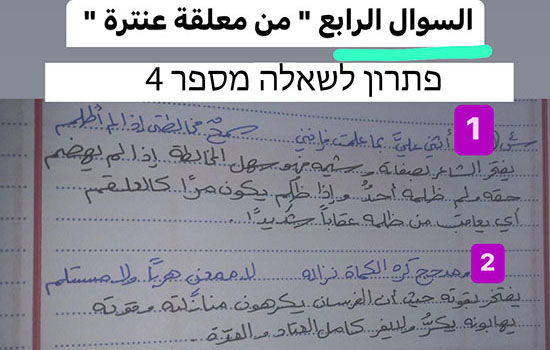 السوال الرابع " من معلقة عنترة "
פתרון לשאלה מספר 4
1
أثني عليّ بما علمت فإنني سمحٌ مخالطتي إذا لم أظلم
يفتخر الشاعر بصفاته و فهو سهل المخالطة إذا لم يهضم
حقه ولم ظلمه أحدٌ وإذا ظُلِم يكون مرًا كالعلقم
أي يعاقب من ظلمه عقابًا شديدًا.
2
ومدجج كره الكماة نزاله لا ممعنٍ هربًا ولا مستلم
يفتخر بقوته حيث أن الفرسان يكرهون منازلته وقوته
يهابونه يكرُّ و كامل العتاد والعدّة.